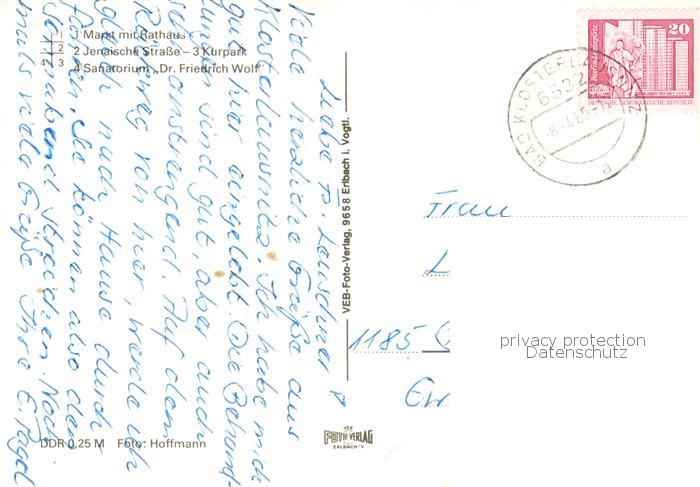 1 Markt mit Rathaus
2 Jenaische Straße – 3 Kurpark
4 Sanatorium „Dr. Friedrich Wolf"
1
2
4 3
Liebe Fr. Leuschner!
viele herzliche Grüße aus
Klosterlausnitz. Ich habe mich
gut hier eingelebt. Die Behand-
lungen sind gut, aber auch
sehr anstrengend. Auf dem
Rückweg von hier, werde ich
gleich nach Hause durch
fahren. Sie können also den
Sonnabend streichen. Noch
mals viele Grüße Ihre E. Pagel
DDR 0,25 M Foto: Hoffmann
VEB-Foto-Verlag, 9658 Erlbach i. Vogtl.
VEB
FOTO VERLAG
ERLBACH/V.
BAD KLOSTERLAUSNITZ
6532
e
20
Berlin-Leninplatz
DEUTSCHE DEMOKRATISCHE REPUBLIK
Frau
L
1185
privacy protection
Datenschutz